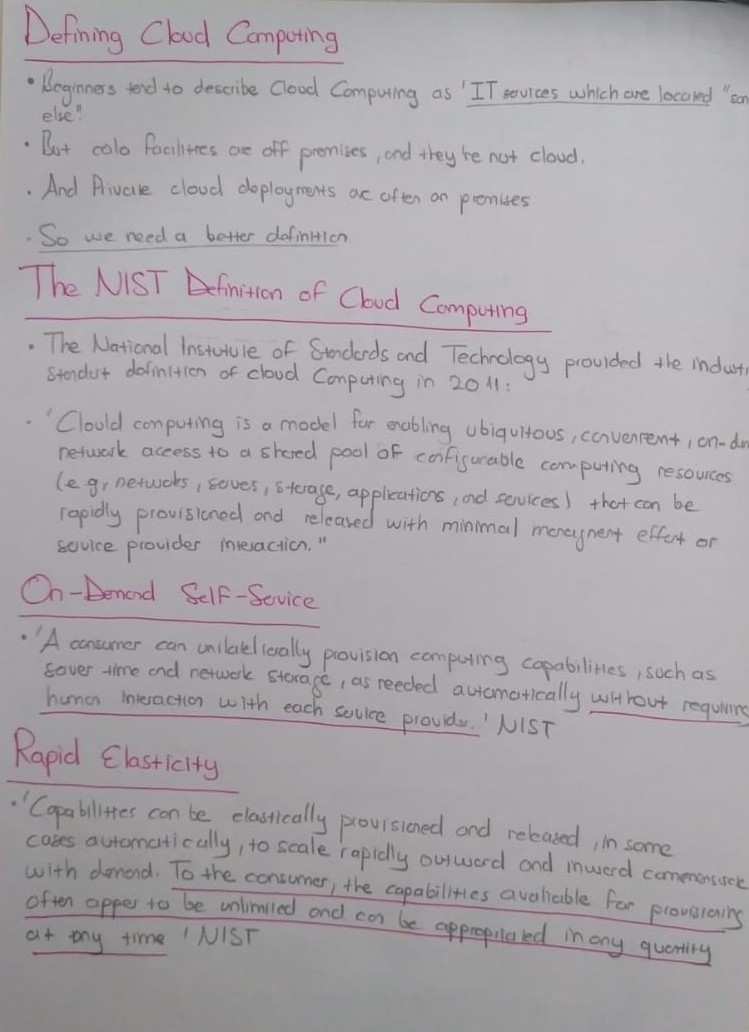 Defining Cloud Computing
• Beginners tend to describe Cloud Computing as 'IT sources which are located "som
else"
• But colo facilities are off premises, and they're not cloud.
• And Private cloud deployments are often on premises
• So we need a better definition
The NIST Definition of Cloud Computing
• The National Institutule of Standards and Technology provided the industr
standart definition of cloud Computing in 2011:
• "Clould computing is a model for enabling ubiquitous, convenient, on-dem
network access to a shared pool of configurable computing resources
(e.g, networks, servers, storage, applications, and services) that can be
rapidly provisioned and released with minimal management effort or
service provider interaction."
On-Demand Self-Service
• 'A consumer can unilaterally provision computing capabilities, such as
server time and network storage, as needed automatically without requiring
human interaction with each service provider.' NIST
Rapid Elasticity
• 'Capabilities can be elastically provisioned and released, in some
cases automatically, to scale rapidly outward and inward
with demand. To the consumer, the capabilities avaliable for provisioning
often apper to be unlimited and can be in any quantity
at any time ' NIST